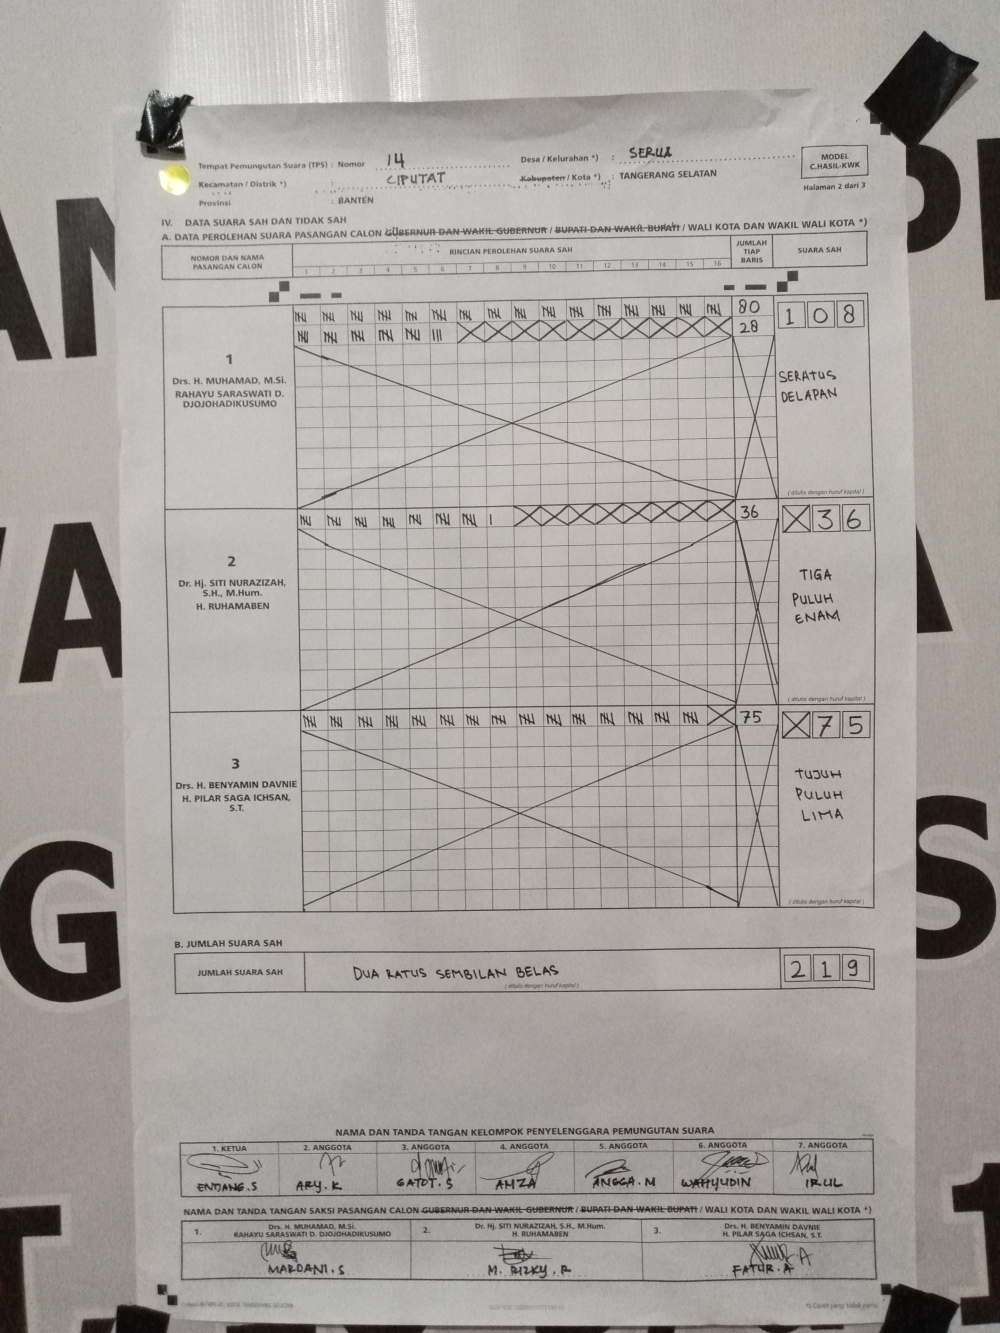 Tempat Pemungutan Suara (TPS) : Nomor 14 Desa / Kelurahan *) : SERUA
Kecamatan / Distrik *) : CIPUTAT Kabupaten / Kota *) : TANGERANG SELATAN
Provinsi : BANTEN
MODEL
C.HASIL-KWK
Halaman 2 dari 3
IV. DATA SUARA SAH DAN TIDAK SAH
A. DATA PEROLEHAN SUARA PASANGAN CALON GUBERNUR DAN WAKIL GUBERNUR / BUPATI DAN WAKIL BUPATI / WALI KOTA DAN WAKIL WALI KOTA *)
NOMOR DAN NAMA
PASANGAN CALON
RINCIAN PEROLEHAN SUARA SAH
1 2 3 4 5 6 7 8 9 10 11 12 13 14 15 16
JUMLAH
TIAP
BARIS
SUARA SAH
1
Drs. H. MUHAMAD, M.Si.
RAHAYU SARASWATI D.
DJOJOHADIKUSUMO
80
28
108
SERATUS
DELAPAN
( ditulis dengan huruf kapital )
2
Dr. Hj. SITI NURAZIZAH,
S.H., M.Hum.
H. RUHAMABEN
36
X36
TIGA
PULUH
ENAM
( ditulis dengan huruf kapital )
3
Drs. H. BENYAMIN DAVNIE
H. PILAR SAGA ICHSAN,
S.T.
75
X75
TUJUH
PULUH
LIMA
( ditulis dengan huruf kapital )
B. JUMLAH SUARA SAH
JUMLAH SUARA SAH DUA RATUS SEMBILAN BELAS 219
( ditulis dengan huruf kapital )
NAMA DAN TANDA TANGAN KELOMPOK PENYELENGGARA PEMUNGUTAN SUARA
1. KETUA 2. ANGGOTA 3. ANGGOTA 4. ANGGOTA 5. ANGGOTA 6. ANGGOTA 7. ANGGOTA
ENDANG.S ARY.K GATOT.S AMZA ANGGA.M WAHYUDIN IRUL
NAMA DAN TANDA TANGAN SAKSI PASANGAN CALON GUBERNUR DAN WAKIL GUBERNUR / BUPATI DAN WAKIL BUPATI / WALI KOTA DAN WAKIL WALI KOTA *)
1. Drs. H. MUHAMAD, M.Si.
RAHAYU SARASWATI D. DJOJOHADIKUSUMO
2. Dr. Hj. SITI NURAZIZAH, S.H., M.Hum.
H. RUHAMABEN
3. Drs. H. BENYAMIN DAVNIE
H. PILAR SAGA ICHSAN, S.T.
MARDANI.S M. RIZKY.R FATUR.A
*) Coret yang tidak perlu